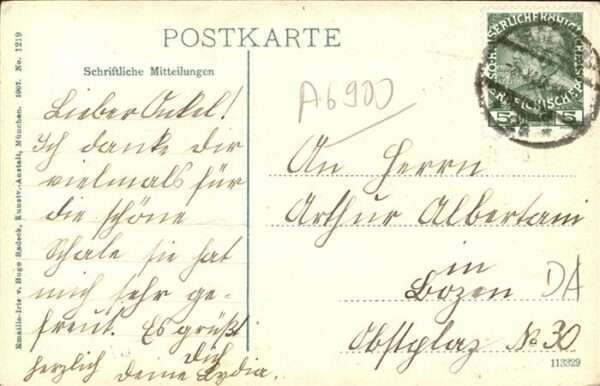 POSTKARTE
Schriftliche Mitteilungen
Lieber Onkel!
Ich danke dir
vielmals für
die schöne
Schale sie hat
mich sehr ge-
freut. Es grüßt
dich
herzlich deine Lydia.
A6900
An Herrn
Arthur Albertani
in
Bozen
DA
Obstplaz No 30
113329
Emaille-Iris v. Hugo Radeck, Kunstv.-Anstalt, München. 1907. No. 1219
5 5